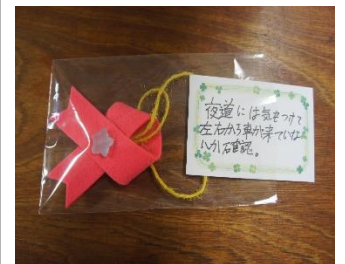 夜道には気をつけて
左右から車が来ていな
いか確認。